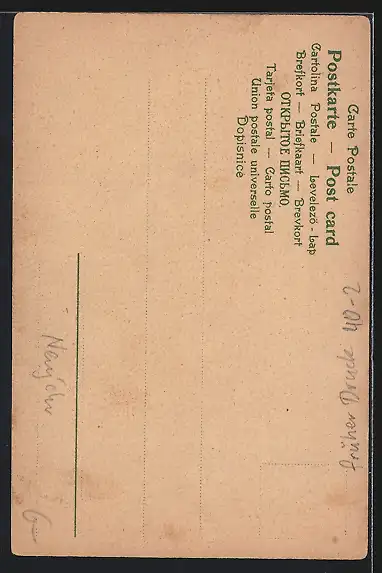 Carte Postale
Postkarte — Post card
Cartolina Postale — Levelező-Lap
Brefkort — Briefkaart — Brevkort
ОТКРЫТОЕ ПИСЬМО.
Tarjeta postal — Carto postal
Union postale universelle
Dopisnice
früher Druck 40-2
Neujahr
6-